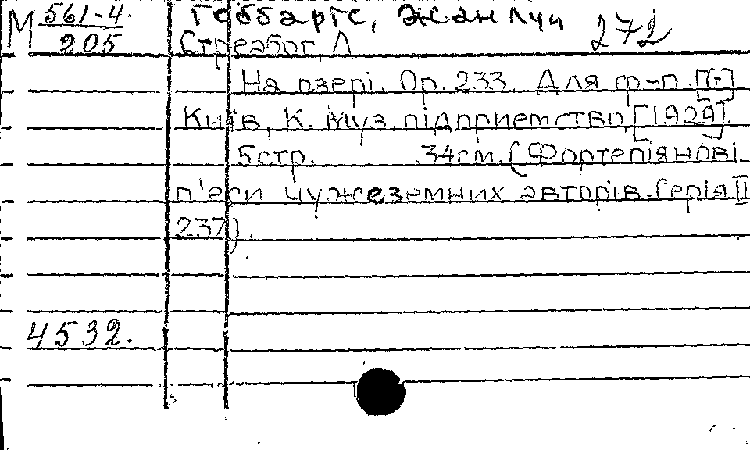 М 561-4. Геббартс, Жан Луи
205 Стреабог, Л 272
На озері. Ор. 233. Для ф-п. [І-]
Київ, К. Муз. підприємство, [1929].
5 стр. 34 см. (Фортепіянові
п'єси чужеземних авторів. Серія ІІ
237).
4532.